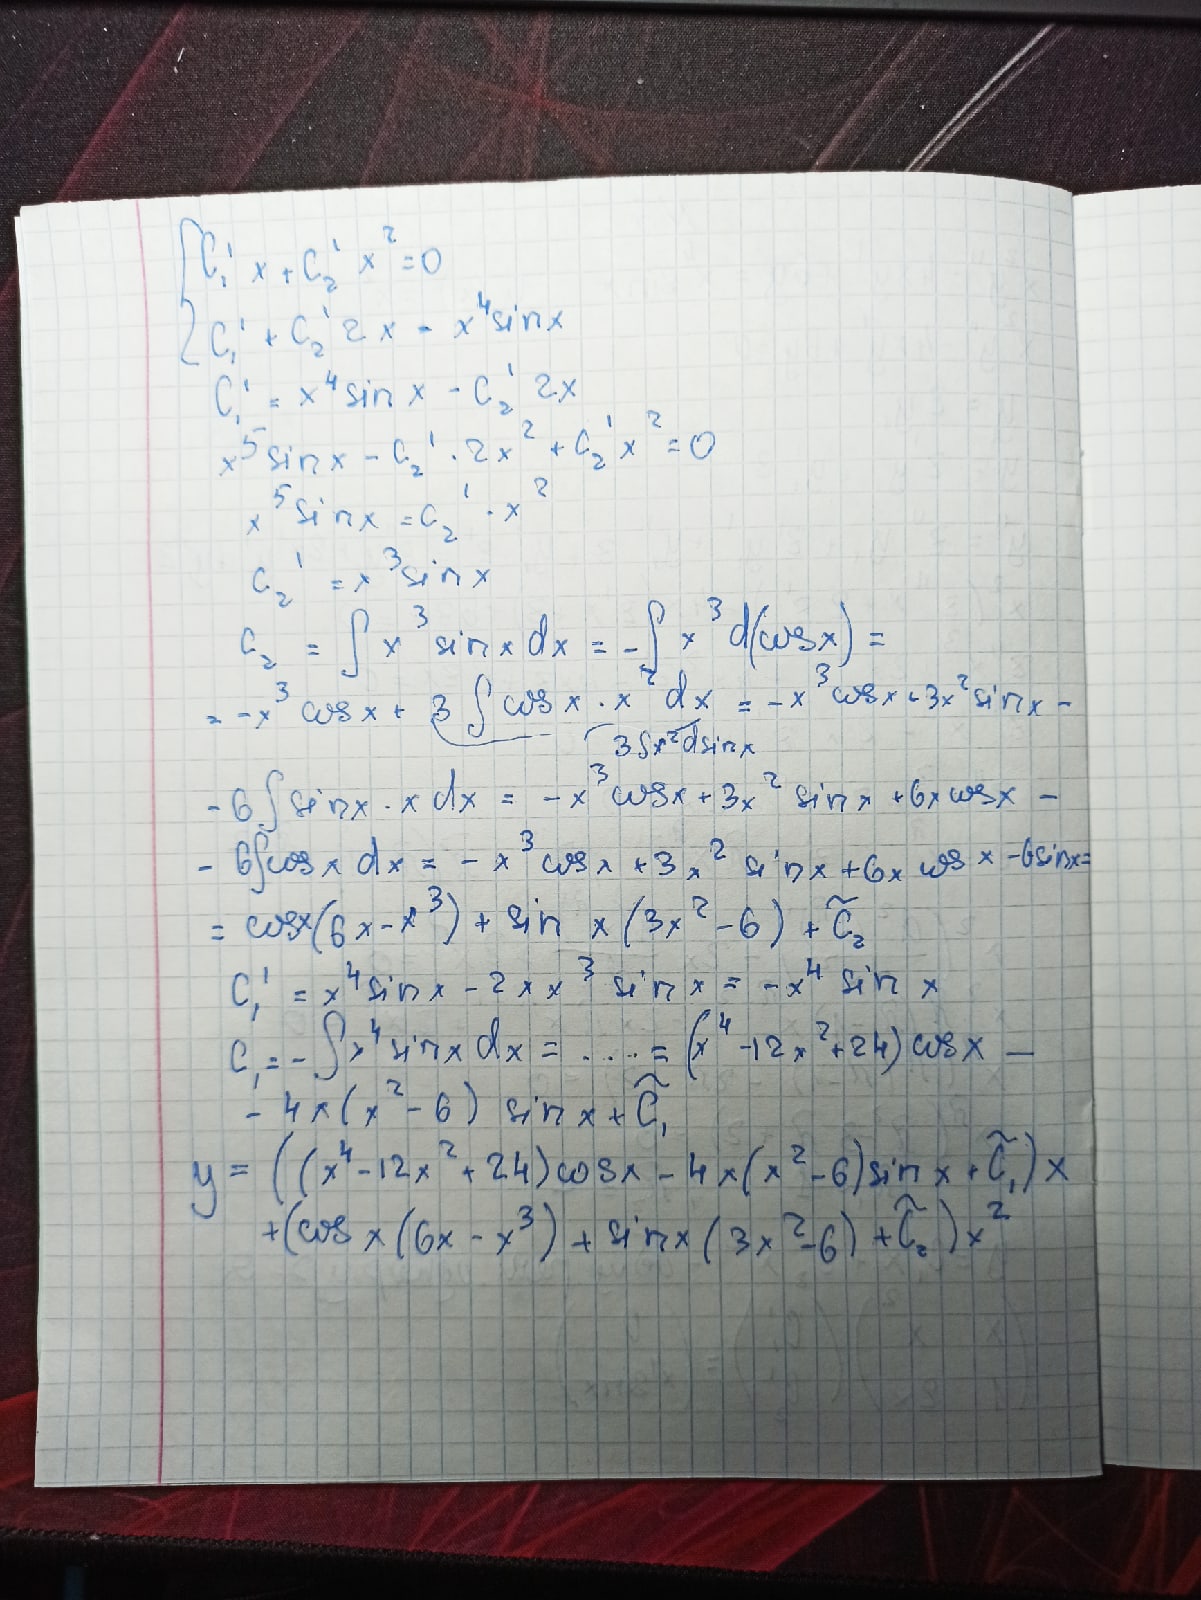 { C₁' x + C₂' x² = 0
C₁' + C₂' 2x = x⁴ sin x
C₁' = x⁴ sin x - C₂' 2x
x⁵ sin x - C₂' · 2x² + C₂' x² = 0
x⁵ sin x = C₂' · x²
C₂' = x³ sin x
C₂ = ∫ x³ sin x dx = -∫ x³ d(cos x) =
= -x³ cos x + 3 ∫ cos x · x² dx = -x³ cos x + 3x² sin x -
3∫x² d sin x
- 6 ∫ sin x · x dx = -x³ cos x + 3x² sin x + 6x cos x -
- 6∫cos x dx = -x³ cos x + 3x² sin x + 6x cos x - 6 sin x =
= cos x (6x - x³) + sin x (3x² - 6) + C̃₂
C₁' = x⁴ sin x - 2x x³ sin x = -x⁴ sin x
C₁ = -∫ x⁴ sin x dx = .... = (x⁴ - 12x² + 24) cos x -
- 4x (x² - 6) sin x + C̃₁
y = ((x⁴ - 12x² + 24) cos x - 4x (x² - 6) sin x + C̃₁) x
+ (cos x (6x - x³) + sin x (3x² - 6) + C̃₂) x²